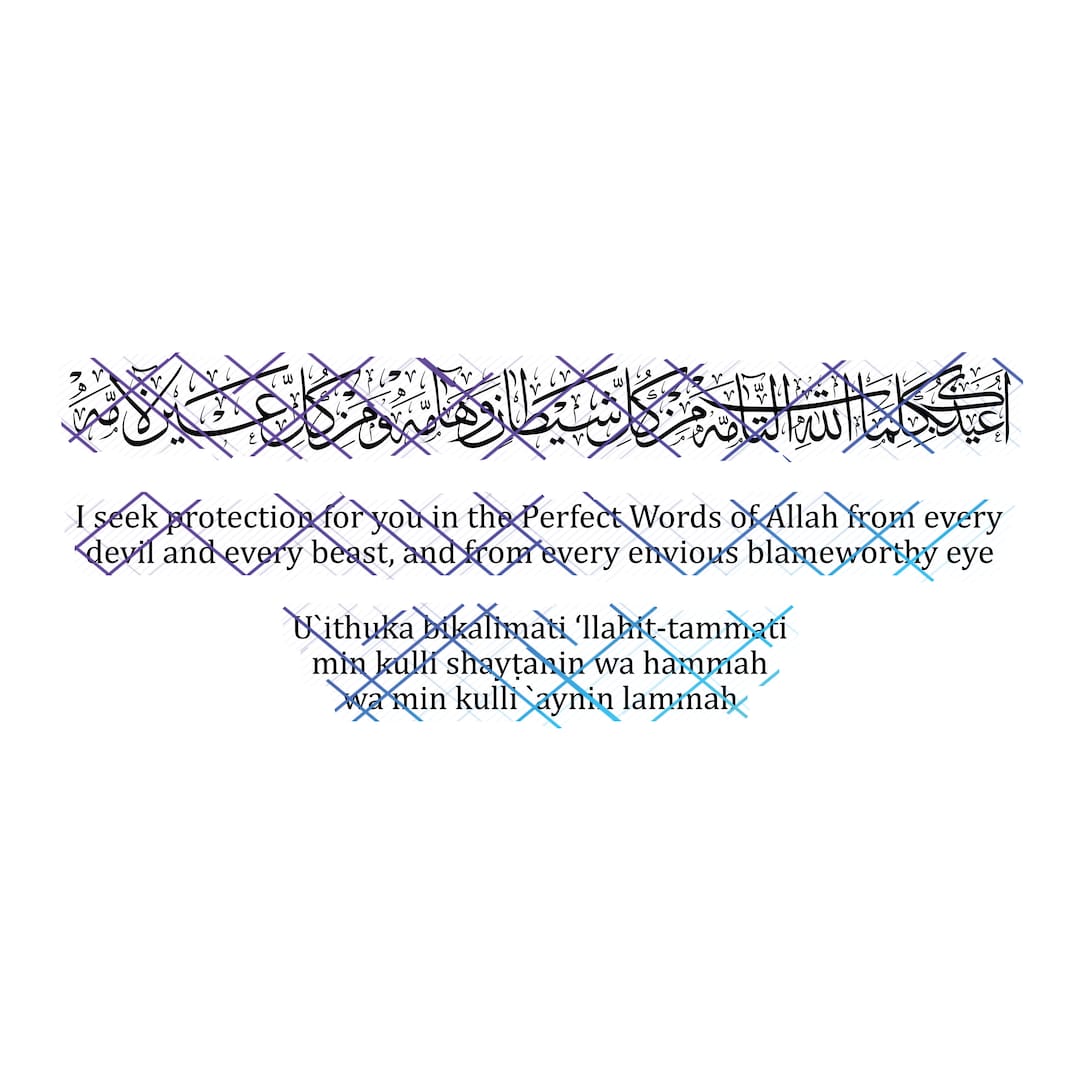 أُعِيذُكَ بِكَلِمَاتِ اللَّهِ التَّامَّةِ مِنْ كُلِّ شَيْطَانٍ وَهَامَّةٍ وَمِنْ كُلِّ عَيْنٍ لَامَّةٍ
I seek protection for you in the Perfect Words of Allah from every
devil and every beast, and from every envious blameworthy eye
U`ithuka bikalimati ‘llahit-tammati
min kulli shayṭanin wa hammah
wa min kulli `aynin lammah